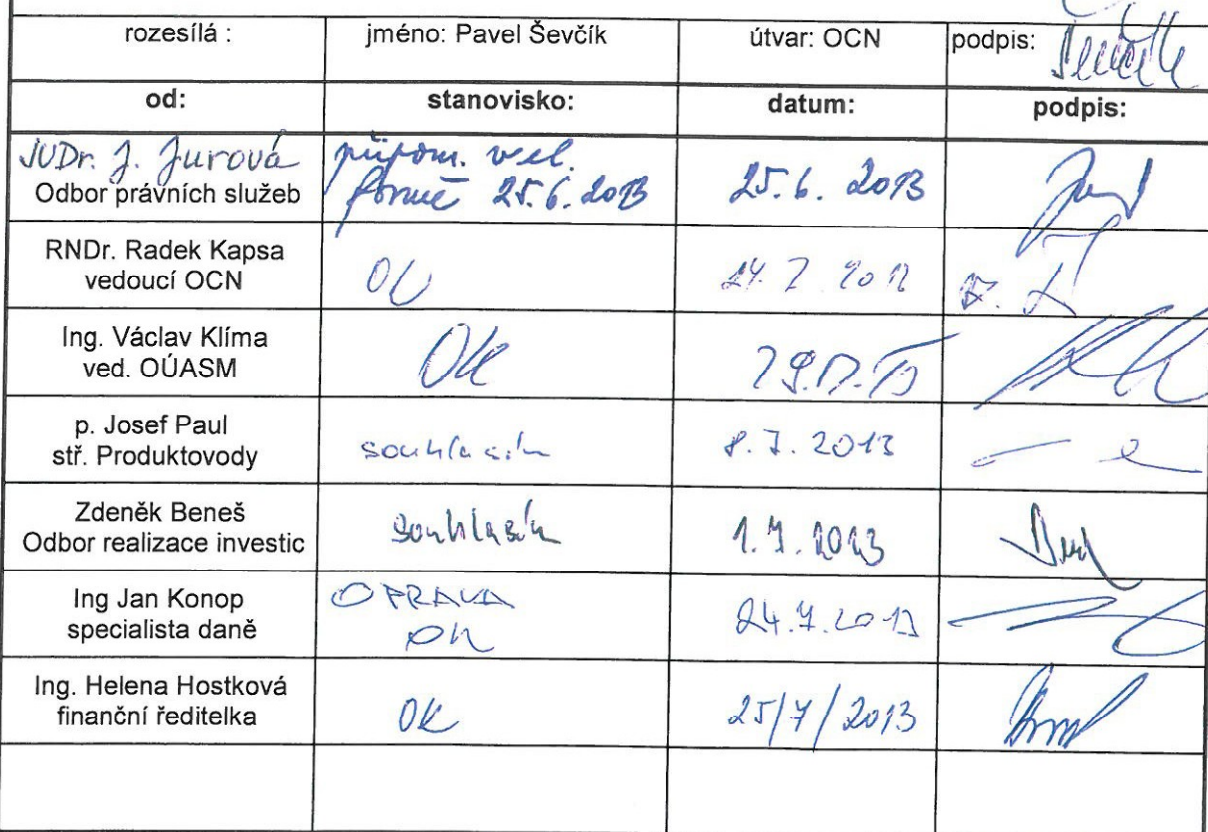 rozesílá : jméno: Pavel Ševčík útvar: OCN podpis:
od: stanovisko: datum: podpis:
JUDr. J. Jurová připom. vel.
Odbor právních služeb formě 25.6.2013 25.6. 2013
RNDr. Radek Kapsa
vedoucí OCN OK
Ing. Václav Klíma
ved. OÚASM OK
p. Josef Paul
stř. Produktovody souhlasím 8.7.2013
Zdeněk Beneš
Odbor realizace investic souhlasím 1.7.2013
Ing Jan Konop OPRAVA
specialista daně OK 24.7.2013
Ing. Helena Hostková
finanční ředitelka OK 25/7/2013